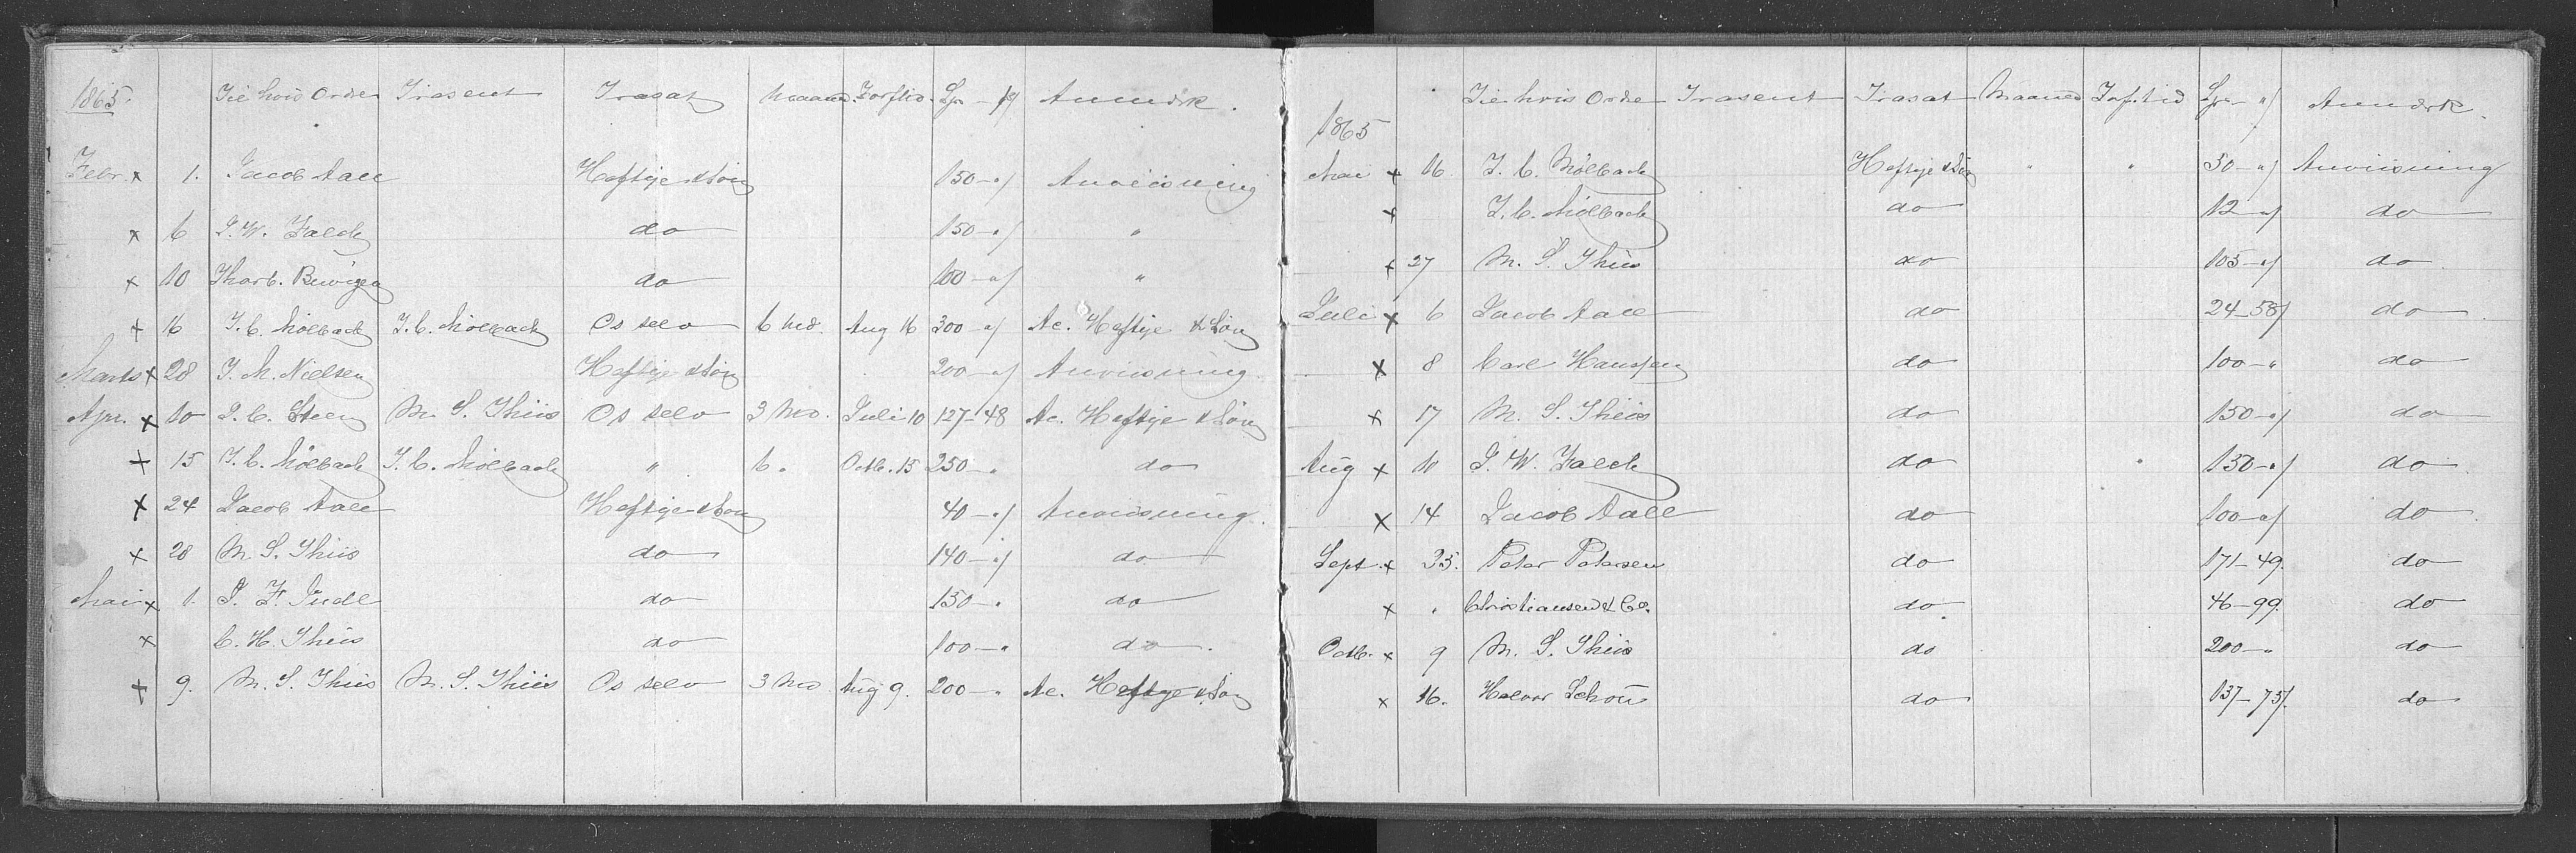 1865. Til hvis Ordre Trasent Trasat Maaned. Forftid. Sp - ß Anmærk.
Febr. x 1. Jacob Aall Heftye & Søn 150 - " Anviisning
x 6 J. W. Falck do 150 - " "
x 10 Thorb. do 100 - " "
x 16 J. C. Mølbach J. C. Mølbach Os selv 6 Md. Aug 16 300 - " Ac. Heftye & Søn
Marts x 28 J. M. Nielsen Heftye & Søn 200 - " Anviisning.
Apr. x 10 P. C. Steen M. S. Thiis Os selv 3 Md. Juli 10 127-48 Ac. Heftye & Søn
x 15 J. C. Mølbach J. C. Mølbach " 6 " Octb. 15 250 - " do
x 24 Jacob Aall Heftye & Søn 40 - " Anviisning.
x 28 M. S. Thiis do 140 - " do
Mai x 1. P. F. Juell do 150 - " do
x C. H. Thiis do 100 - " do.
x 9. M. S. Thiis M. S. Thiis Os selv 3 Md Aug 9. 200 - " Ac. Heftye & Søn
Til hvis Ordre Trasent Trasat Maaned Forf.tid Sp - ß Anmærk.
1865
Mai x 16. J. C. Mølbach Heftye & Søn " " 50 - " Anviisning
x J. C. Mølbach do 12 - " do
x 27 M. S. Thiis do 105 - " do
Juli x 6 Jacob Aall do 24-58 do
x 8 Carl Hanssen do 100 - " do
x 17 M. S. Thiis do 150 - " do
Aug x 10 J. W. Falck do 150 - " do
x 14 Jacob Aall do 100 - " do
Sept. x 25. Peter Petersen do 171-49. do
x " Christiansen & Co. do 46-99. do
Octb. x 9 M. S. Thiis do 200 - " do
x 16. Halvor Schou do 137-75. do